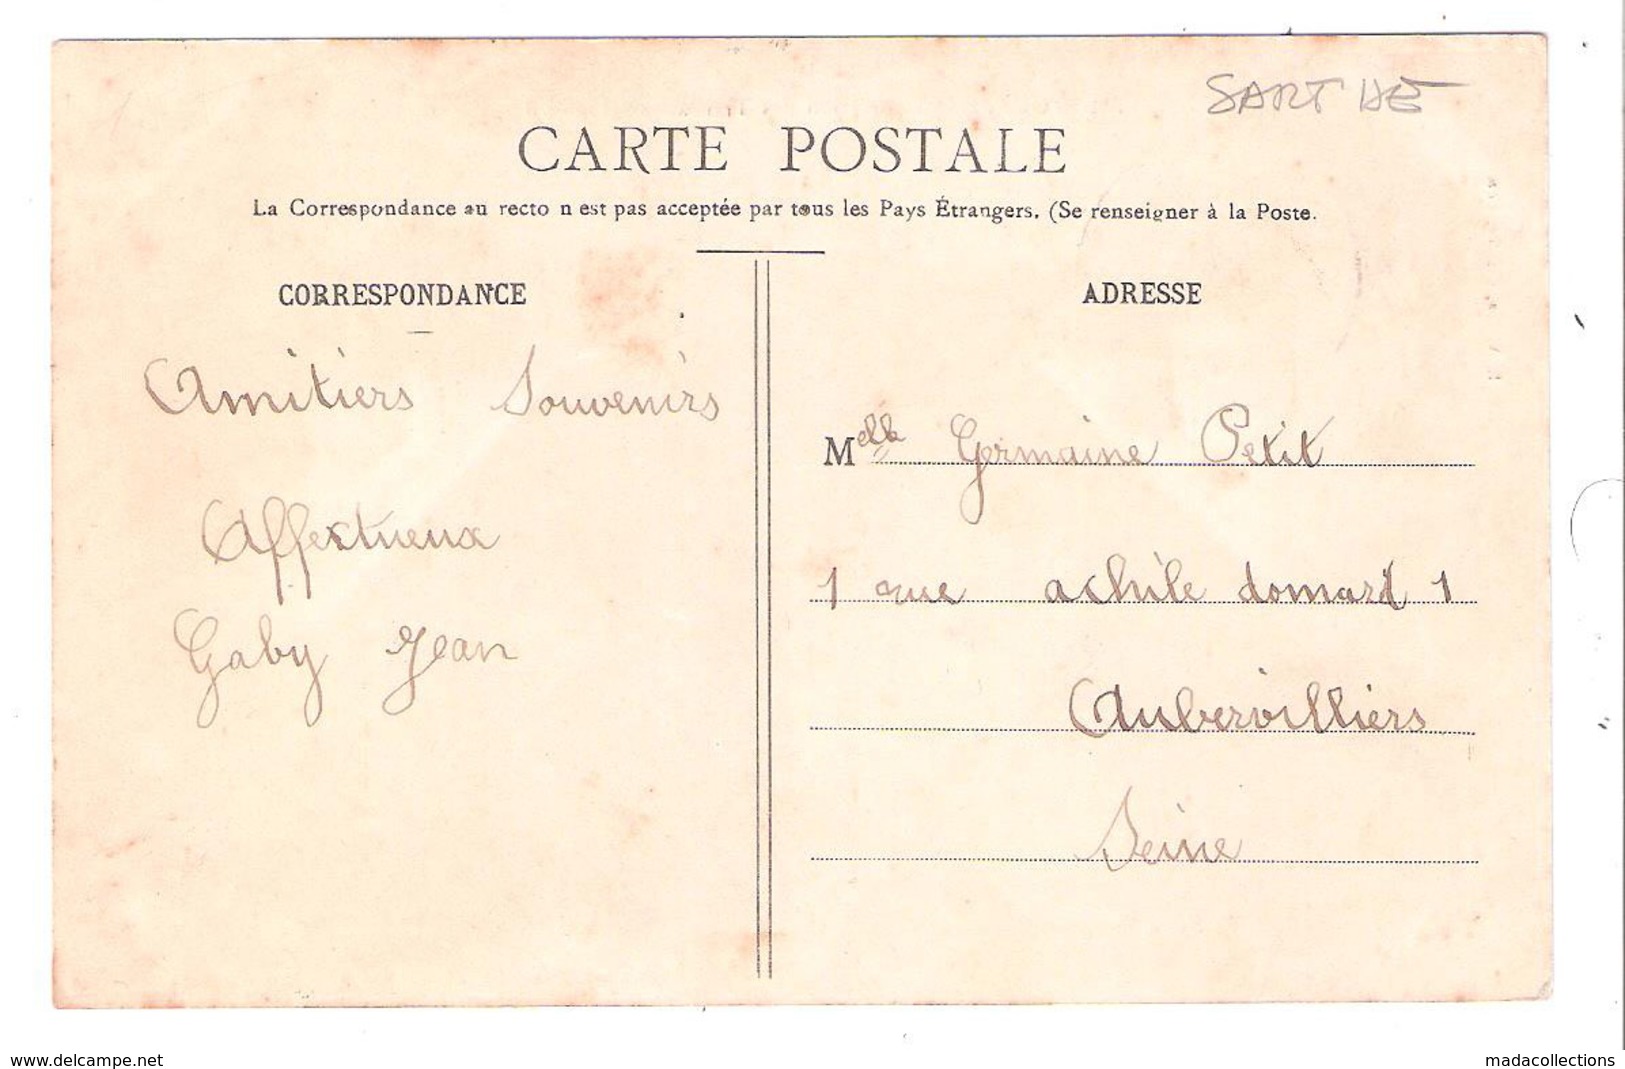 SARTHE
CARTE POSTALE
La Correspondance au recto n est pas acceptée par tous les Pays Étrangers. (Se renseigner à la Poste.
CORRESPONDANCE
Amitiers Souvenirs
Affectueux
Gaby Jean
ADRESSE
Melle Germaine Petit
1 rue achile domart 1
Aubervilliers
Seine
www.delcampe.net
madacollections